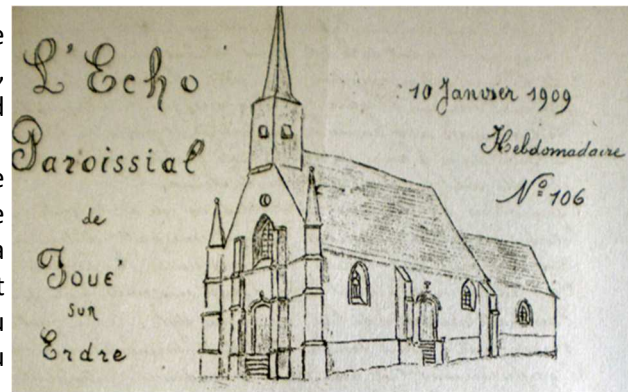 L'Echo
Paroissial
de
Joué
sur
Erdre
10 Janvier 1909
Hebdomadaire
Nº 106